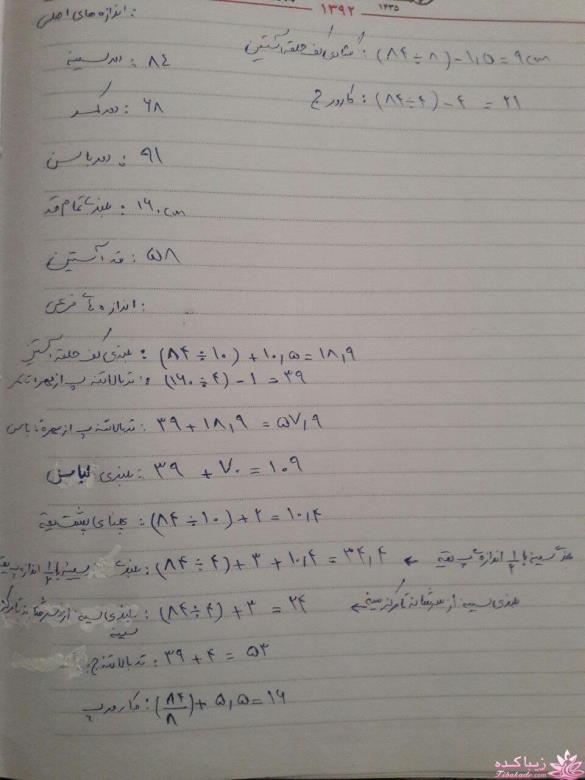 ۱۳۹۲
۱۴۳۵
اندازه های اصلی :
دور سینه : ۸۴
گشادی کف حلقه آستین : (۸۴ ÷ ۸) - ۱,۵ = ۹ cm
دور کمر : ۶۸
کارور ج : (۸۴ ÷ ۴) - ۴ = ۲۱
دور باسن : ۹۱
بلندی تمام قد : ۱۶۰ cm
قد آستین : ۵۸
اندازه های فرعی :
بلندی کف حلقه آستین : (۸۴ ÷ ۱۰) + ۱۰,۵ = ۱۸,۹
قد بالاتنه پ از مهره تا کمر : (۱۶۰ ÷ ۴) - ۱ = ۳۹
قد بالاتنه پ از مهره تا باسن : ۳۹ + ۱۸,۹ = ۵۷,۹
بلندی لباس : ۳۹ + ۷۰ = ۱۰۹
پهنای پشت یقه : (۸۴ ÷ ۱۰) + ۲ = ۱۰,۴
بلندی سینه با ۱/۲ اندازه پ یقه : (۸۴ ÷ ۴) + ۳ + ۱۰,۴ = ۳۴,۴ ← سینه با ۱/۲ اندازه پ یقه
بلندی سینه از سرشانه تا مرکز سینه : (۸۴ ÷ ۴) + ۳ = ۲۴ بلندی سینه از سرشانه تا مرکز سینه ←
قد بالاتنه ج : ۳۹ + ۴ = ۵۳
کارور پ : (۸۴/۸) + ۵,۵ = ۱۶
زیباکده
Zibakade.com